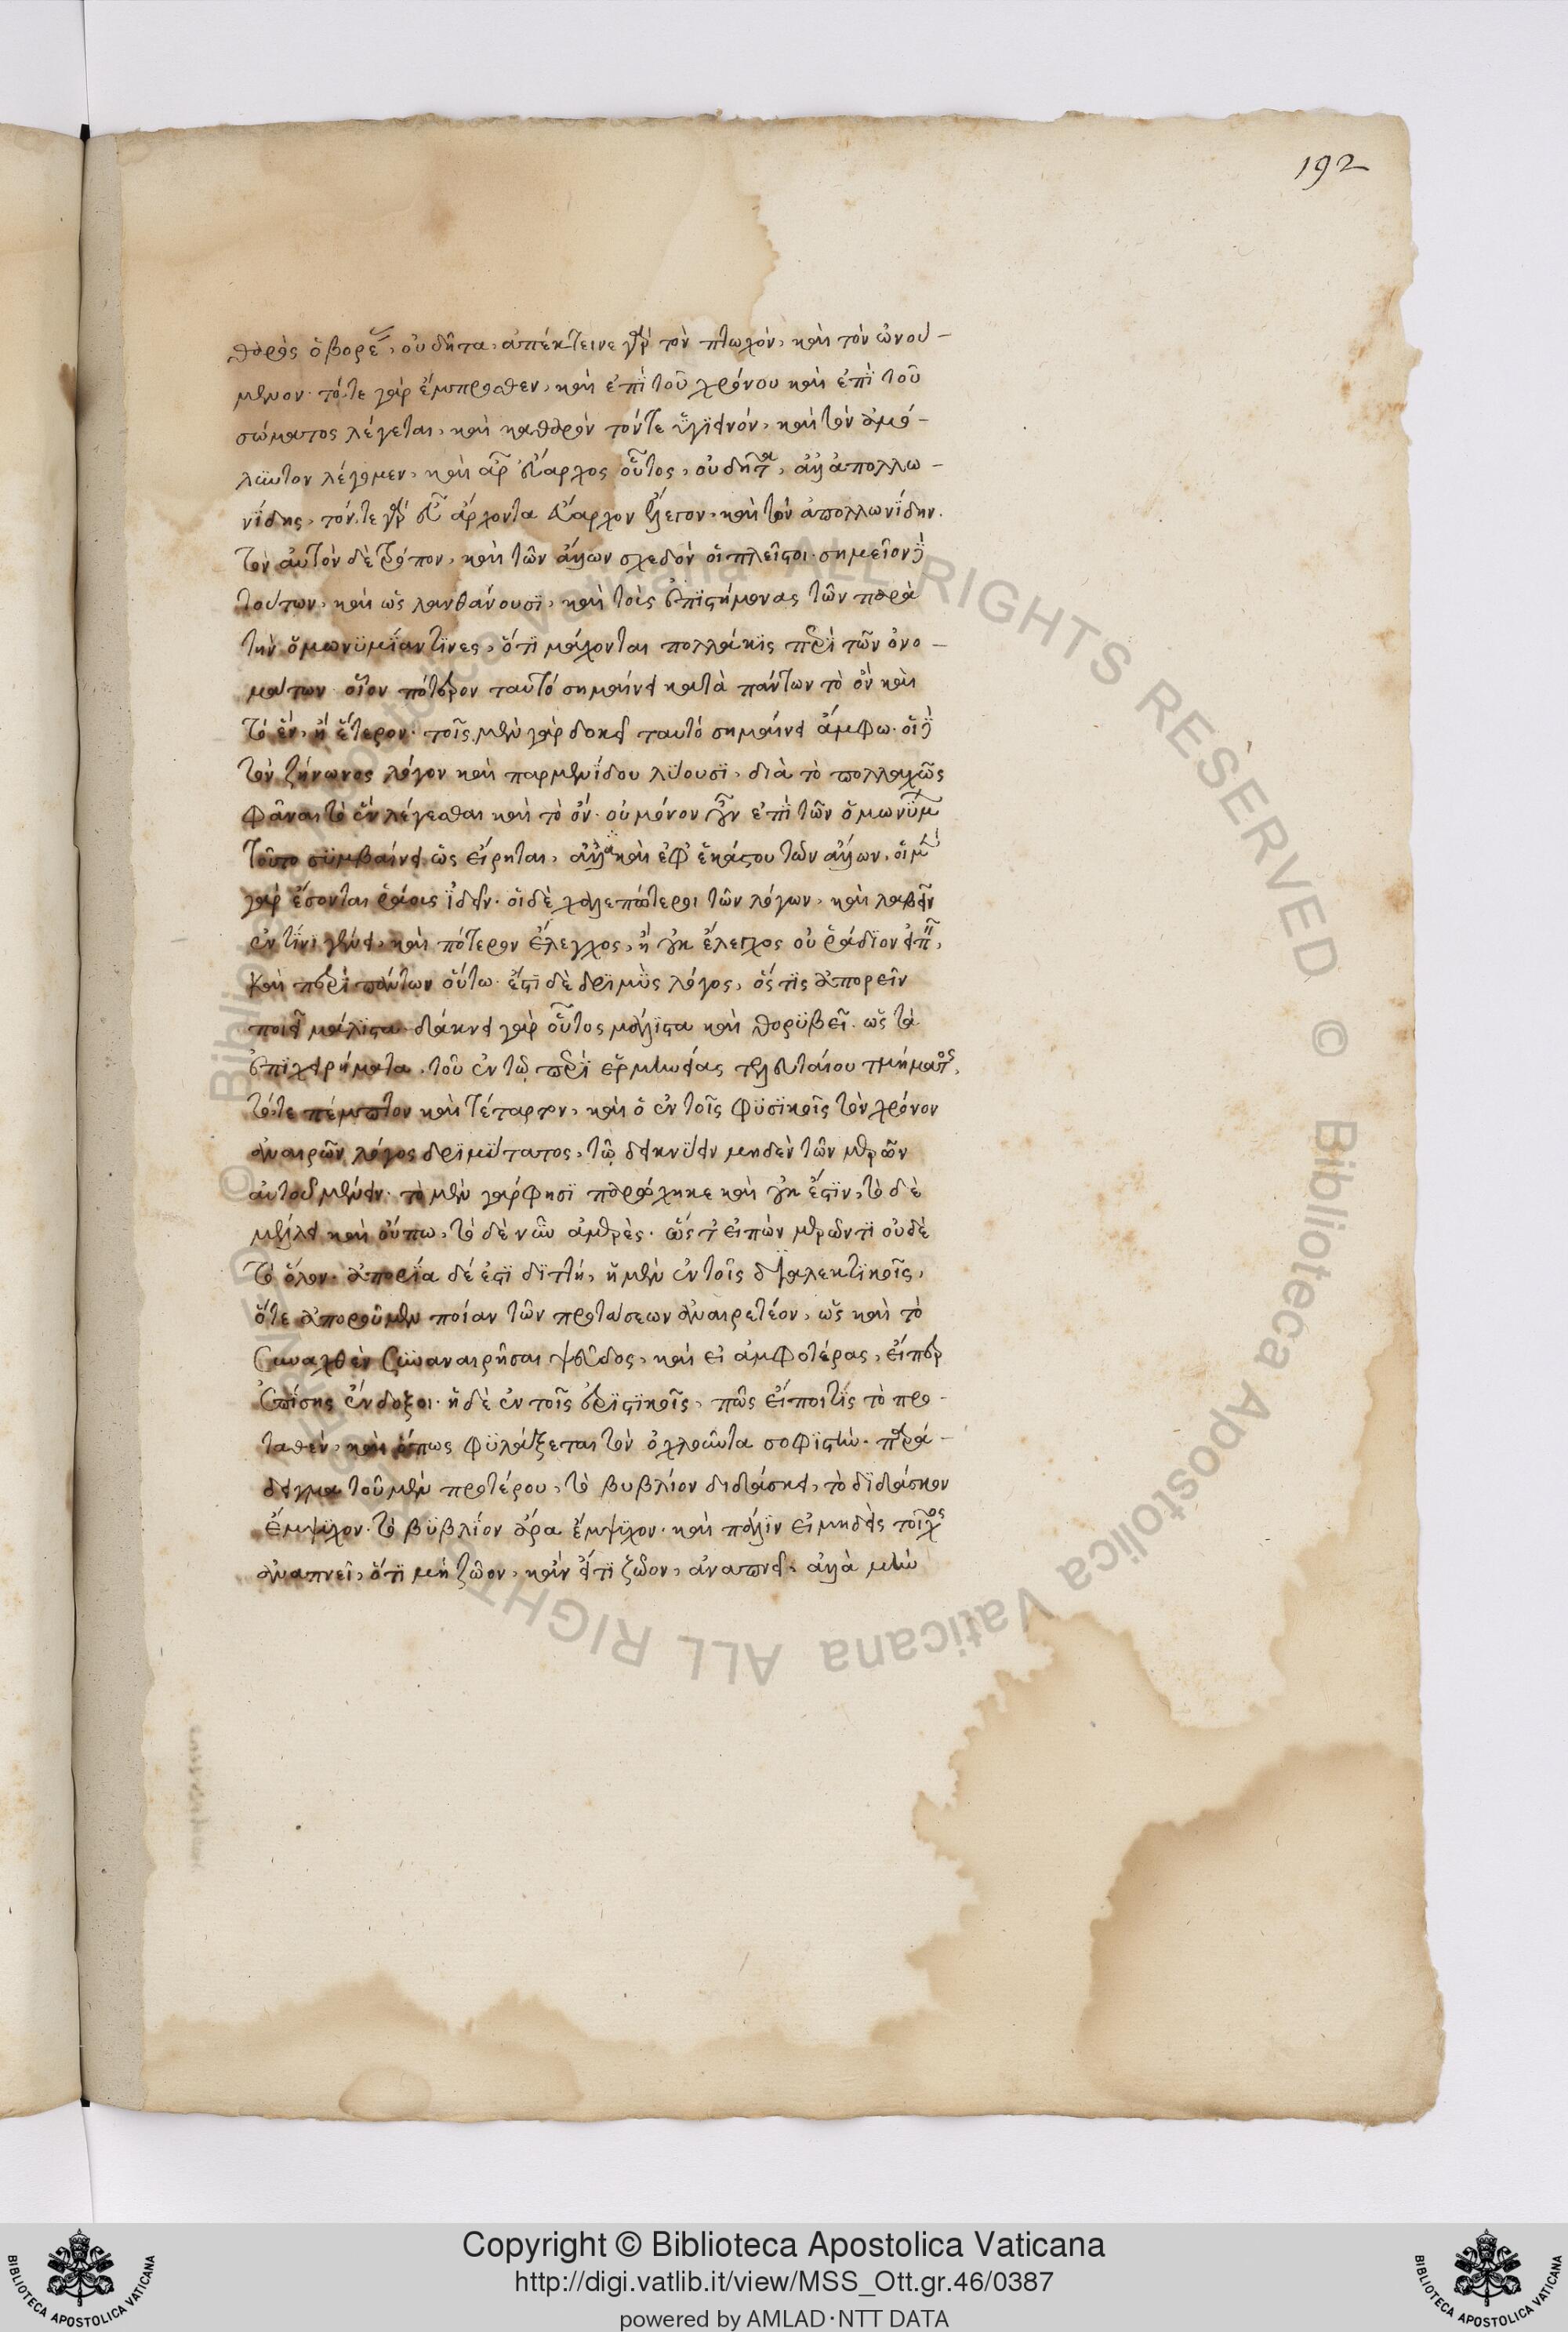 192
θαρὸς ὁ βορέας, οὐ δῆτα, ἀπέκτεινε γὰρ τὸν πτωχόν, καὶ τὸν ὠνού-
μενον. τό, τε γὰρ ἔμπροσθεν, καὶ ἐπὶ τοῦ χρόνου καὶ ἐπὶ τοῦ
σώματος λέγεται, καὶ καθαρὸν τόν τε ὑγιεινόν, καὶ τὸν ἀμό-
λυντον λέγομεν, καὶ ἆρ' εὔαρχος οὗτος, οὐ δῆτα, ἀλλ' ἀπολλω-
νίδης, τόν τε γὰρ εὖ ἄρχοντα εὔαρχον ἔλεγον, καὶ τὸν ἀπολλωνίδην.
τὸν αὐτὸν δὲ τρόπον, καὶ τῶν ἄλλων σχεδὸν οἱ πλεῖστοι. σημεῖον δὲ
τούτων, καὶ ὡς λανθάνουσι, καὶ τοὺς ἐπιστήμονας τῶν παρὰ
τὴν ὁμωνυμίαν τινες, ὅτι μάχονται πολλάκις περὶ τῶν ὀνο-
μάτων. οἷον πότερον ταὐτό σημαίνει κατὰ πάντων τὸ ὂν καὶ
τὸ ἕν, ἢ ἕτερον. τοῖς μὲν γὰρ δοκεῖ ταυτό σημαίνει ἄμφω. οἱ δὲ
τὸν ζήνωνος λόγον καὶ παρμενίδου λύουσι, διὰ τὸ πολλαχῶς
φάναι τὸ ἓν λέγεσθαι καὶ τὸ ὄν. οὐ μόνον οὖν ἐπὶ τῶν ὁμωνύμων
τοῦτο συμβαίνει ὡς εἴρηται, ἀλλὰ καὶ ἐφ' ἑκάστου τῶν ἄλλων. οἱ μὲν
γὰρ ἔσονται ῥάους ἰδεῖν. οἱ δὲ χαλεπώτεροι τῶν λόγων, καὶ λαβεῖν
ἐν τίνι γένει, καὶ πότερον ἔλεγχος, ἢ οὐκ ἔλεγχος οὐ ῥάδιον εἰπεῖν,
καὶ περὶ πάντων οὕτω. ἔστι δὲ δριμὺς λόγος, ὅστις ἀπορεῖν
ποιεῖ μάλιστα. δάκνει γὰρ οὗτος μάλιστα καὶ θορυβεῖ. ὡς τὰ
ἐπιχειρήματα, τοῦ ἐν τῷ περὶ ἑρμηνείας τελευταίου τμήματος,
τό, τε πέμπτον καὶ τέταρτον, καὶ ὁ ἐν τοῖς φυσικοῖς τὸν χρόνον
ἀναιρῶν λόγος δριμύτατος, τῷ δεικνύειν μηδὲν τῶν μερῶν
αὐτοῦ μένειν. τὸ μὲν γάρ φησι παρῴχηκε καὶ οὐκ ἔστιν, τὸ δὲ
μέλλει καὶ οὔπω, τὸ δὲ νῦν ἀμερὲς.
τὸ ὅλον. ἀπορία δέ ἐστι διττή, ἡ μὲν ἐν τοῖς διαλεκτικοῖς,
ὅτε ἀποροῦμεν ποίαν τῶν προτάσεων ἀναιρετέον, ὡς καὶ τὸ
συναχθὲν συναναιρῆσαι ψεῦδος, καὶ εἰ ἀμφοτέρας, εἴπερ
ἐπίσης ἔνδοξοι. ἡ δὲ ἐν τοῖς ἐριστικοῖς, πῶς εἴποι τὶς τὸ προ-
ταθέν, καὶ ὅπως φυλάξεται τὸν ὀχλοῦντα σοφιστήν. παρά-
δειγμα τοῦ μὲν προτέρου, τὸ βυβλίον διδάσκει, τὸ διδάσκον
ἔμψυχον. τὸ βυβλίον ἄρα ἔμψυχον. καὶ πάλιν εἰ μηδεὶς τοῖχος
ἀναπνεῖ, ὅτι μὴ ζῶον, κἂν εἴ τι ζῶον, ἀναπνεῖ. ἀλλὰ μὴν
Copyright © Biblioteca Apostolica Vaticana
http://digi.vatlib.it/view/MSS_Ott.gr.46/0387
powered by AMLAD·NTT DATA